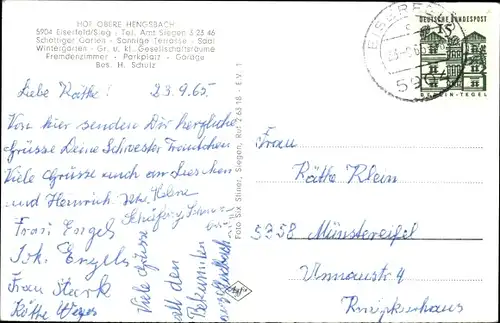 HOF OBERE HENGSBACH
5904 Eiserfeld/Sieg · Tel. Amt Siegen 5 23 46
Schattiger Garten - Sonnige Terrasse - Saal
Wintergarten - Gr. u. kl. Gesellschaftsräume
Fremdenzimmer - Parkplatz - Garage
Bes. H. Schulz
Liebe Käthe! 23.9.65.
Von hier senden Dir herzliche
Grüsse Deine Schwester Trautchen
Viele Grüsse auch an Lieschen
und Heinrich. Helene
Frau Engel
Joh. Engels
Frau Stark
Käthe Weyer
Viele Grüsse
all den
Bekannten
Foto SIX Stiner, Siegen, Ruf 2 63 16 - E.V. 1
EISERFELD
5904
DEUTSCHE BUNDESPOST
15
BERLIN-TEGEL
Frau
Käthe Klein
5358 Münstereifel
Unnaustr 4